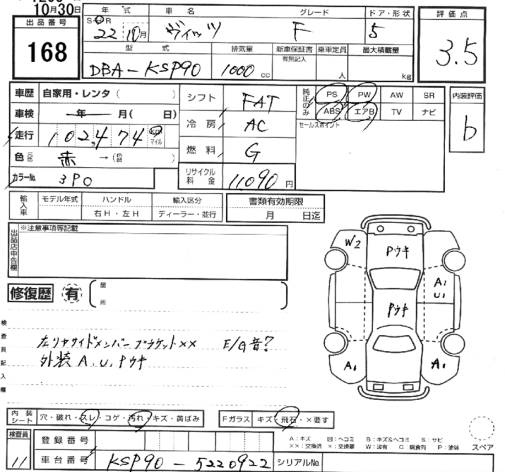 10月30日
出品番号
168
年式
車名
グレード
ドア・形状
S H R
22年10月
ヴィッツ
F
5
評価点
3.5
型式
排気量
新車保証書
有無記入
乗車定員
最大積載量
DBA-KSP90
1000cc
人
kg
車歴 自家用・レンタ( )
車検 年 月( 日)
走行 102,474 マイル
色 赤
カラーNo. 3P0
シフト FAT
冷房 AC
燃料 G
リサイクル料金 11090円
純正のみ
PS PW AW SR
ABS エアB TV ナビ
セールスポイント
内装評価
b
輸入車
モデル年式 ハンドル 輸入区分
右H・左H ディーラー・並行
書類有効期限
月 日迄
出品店申告欄
※注意事項等記載
修復歴 有
箇所
検査員記入欄
左リヤサイドメンバーブラケット×× E/G音?
外装 A.U.Pウキ
W2
Pウキ
A1
U1
Pウキ
A1
A1
内装シート 穴・破れ・スレ・コゲ・汚れ・キズ・黄ばみ
Fガラス キズ・飛石・×要す
A:キズ U:ヘコミ B:キズ&ヘコミ S:サビ
スペア
検査員
11
登録番号
車台番号 KSP90-5220922
シリアルNo.